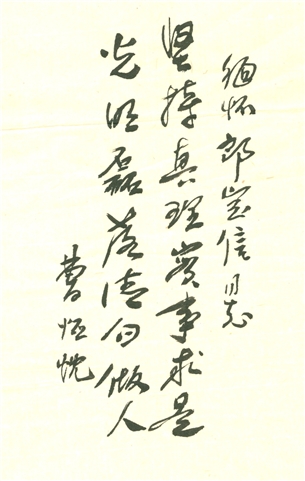 缅怀郎宝信同志
坚持真理实事求是
光明磊落清白做人
曹恒悦